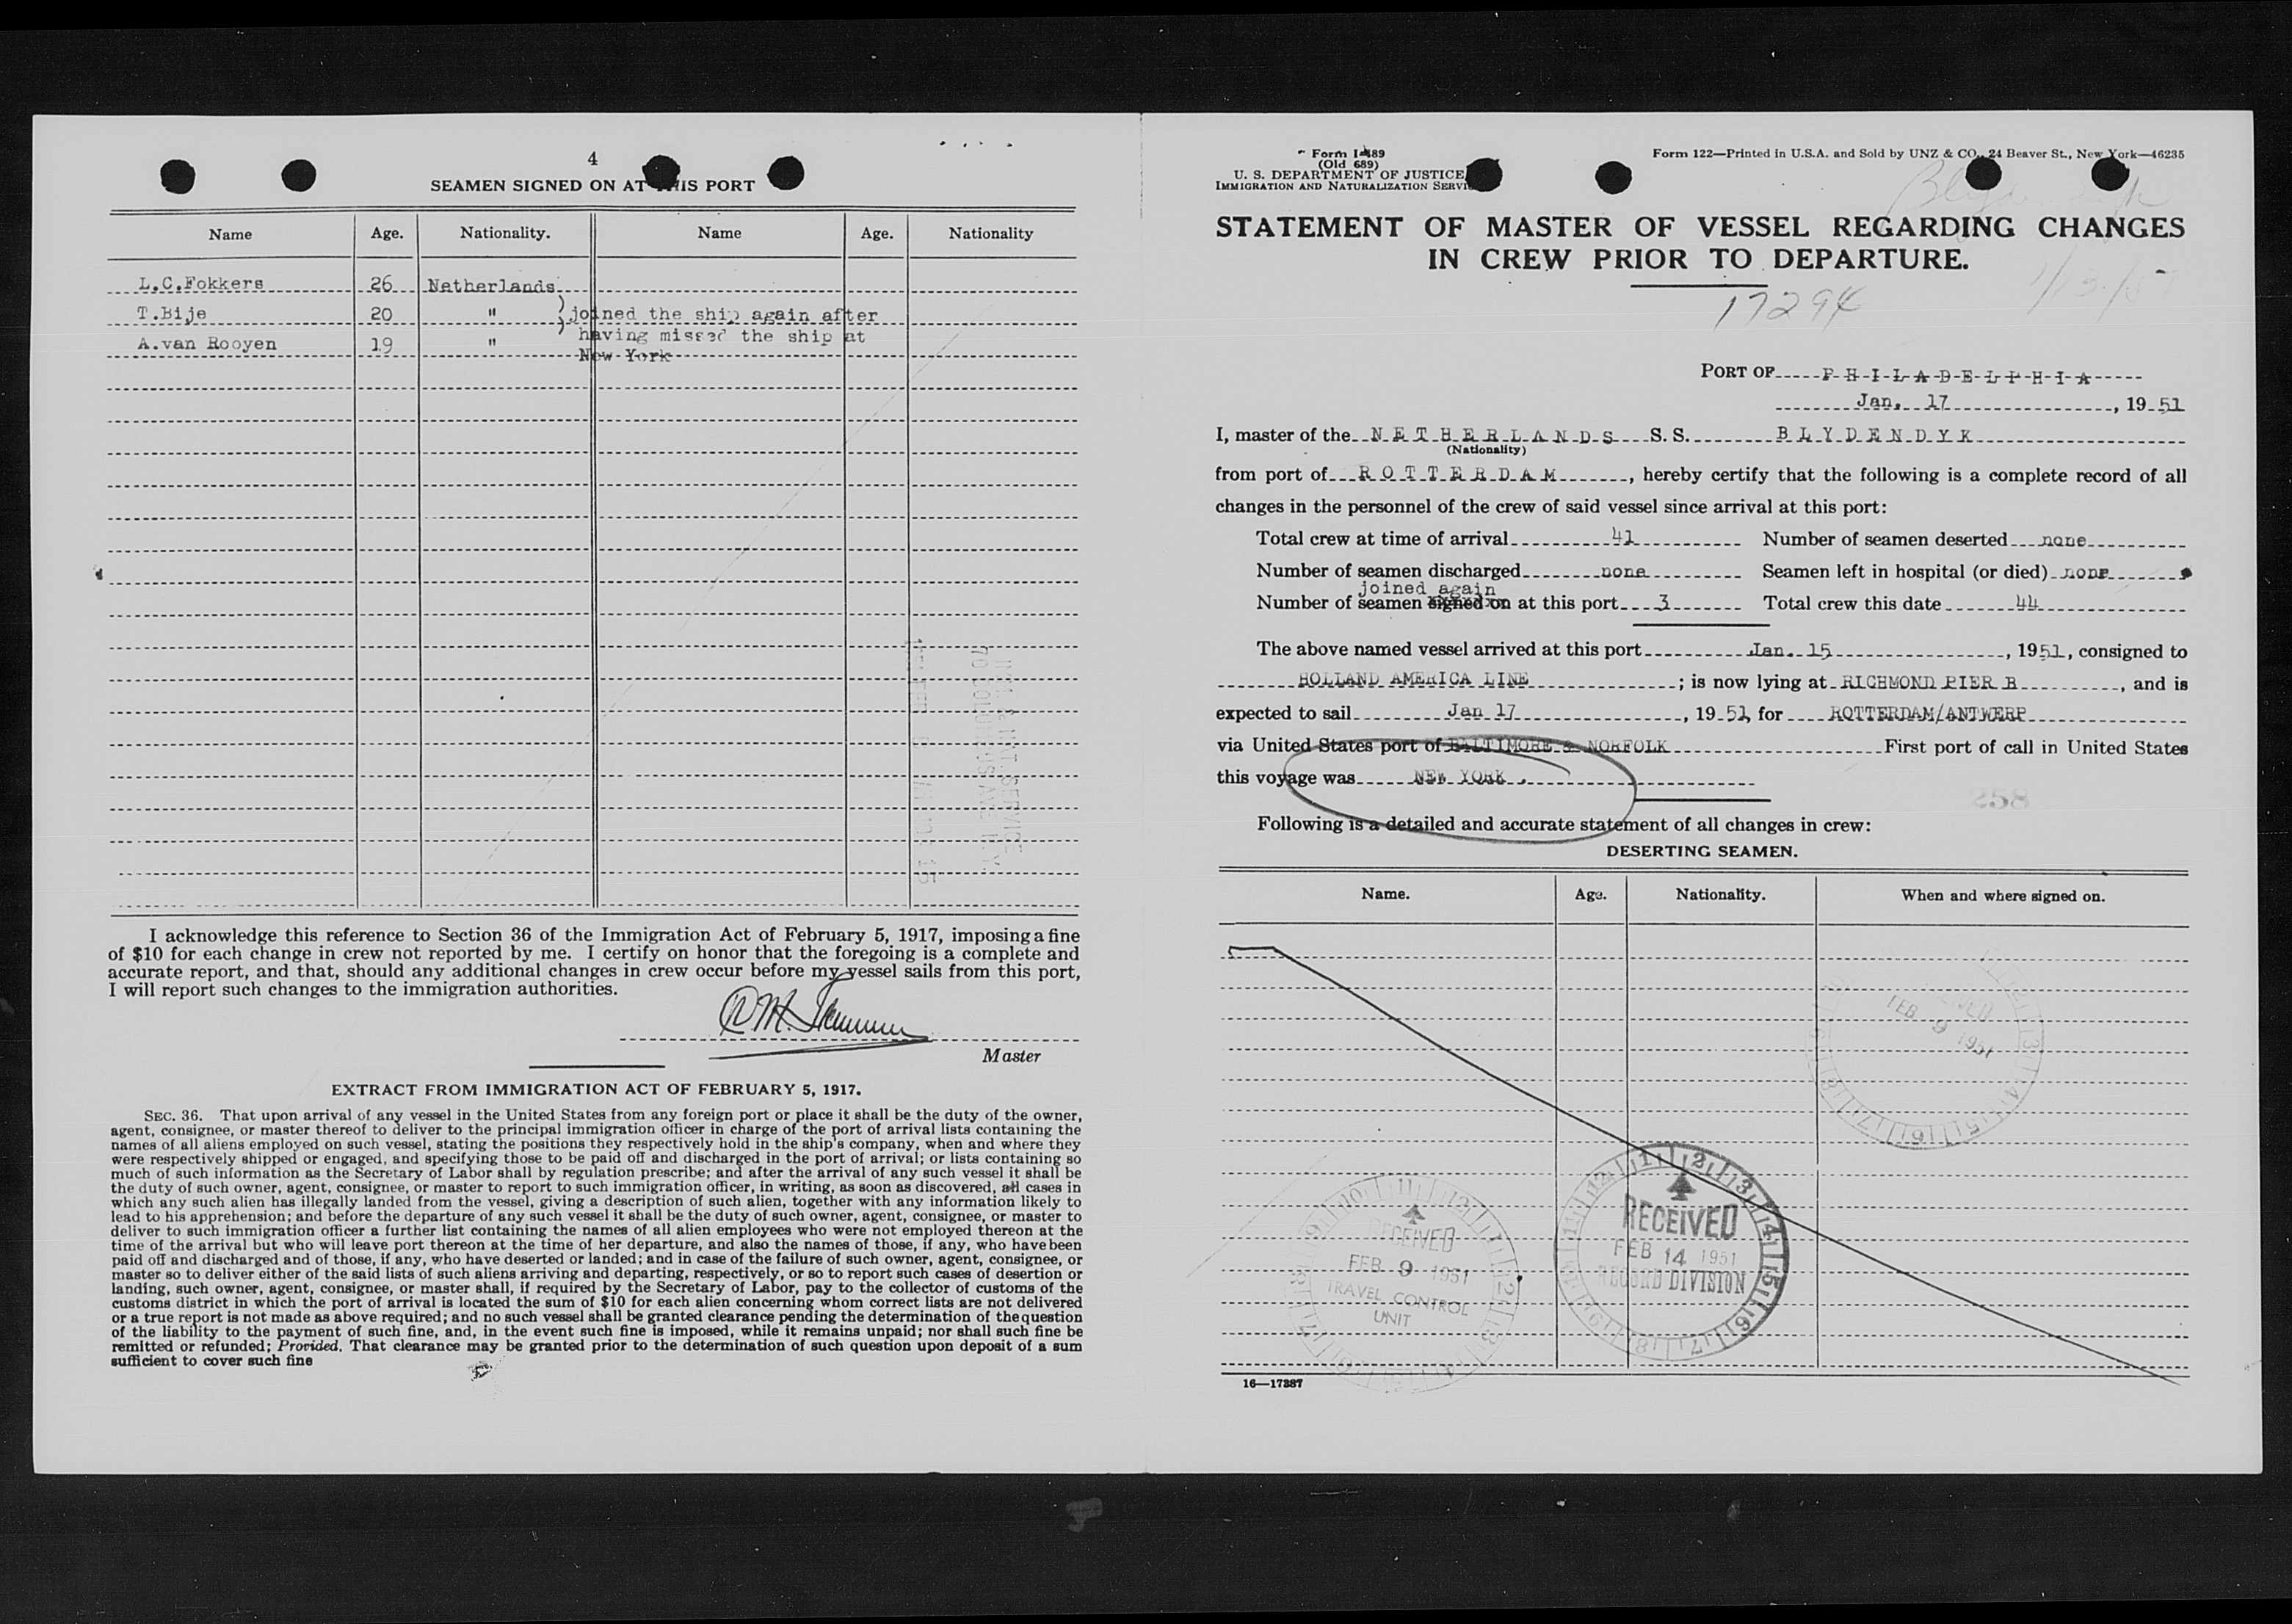 4
SEAMEN SIGNED ON AT THIS PORT
Name Age. Nationality. Name Age. Nationality
L.C.Fokkers 26 Netherlands
T.Bije 20 " ) joined the ship again after
A.van Rooyen 19 " ) having missed the ship at
New York
I acknowledge this reference to Section 36 of the Immigration Act of February 5, 1917, imposing a fine
of $10 for each change in crew not reported by me. I certify on honor that the foregoing is a complete and
accurate report, and that, should any additional changes in crew occur before my vessel sails from this port,
I will report such changes to the immigration authorities.
Master
EXTRACT FROM IMMIGRATION ACT OF FEBRUARY 5, 1917.
SEC. 36. That upon arrival of any vessel in the United States from any foreign port or place it shall be the duty of the owner,
agent, consignee, or master thereof to deliver to the principal immigration officer in charge of the port of arrival lists containing the
names of all aliens employed on such vessel, stating the positions they respectively hold in the ship's company, when and where they
were respectively shipped or engaged, and specifying those to be paid off and discharged in the port of arrival; or lists containing so
much of such information as the Secretary of Labor shall by regulation prescribe; and after the arrival of any such vessel it shall be
the duty of such owner, agent, consignee, or master to report to such immigration officer, in writing, as soon as discovered, all cases in
which any such alien has illegally landed from the vessel, giving a description of such alien, together with any information likely to
lead to his apprehension; and before the departure of any such vessel it shall be the duty of such owner, agent, consignee, or master to
deliver to such immigration officer a further list containing the names of all alien employees who were not employed thereon at the
time of the arrival but who will leave port thereon at the time of her departure, and also the names of those, if any, who have been
paid off and discharged and of those, if any, who have deserted or landed; and in case of the failure of such owner, agent, consignee, or
master so to deliver either of the said lists of such aliens arriving and departing, respectively, or so to report such cases of desertion or
landing, such owner, agent, consignee, or master shall, if required by the Secretary of Labor, pay to the collector of customs of the
customs district in which the port of arrival is located the sum of $10 for each alien concerning whom correct lists are not delivered
or a true report is not made as above required; and no such vessel shall be granted clearance pending the determination of the question
of the liability to the payment of such fine, and, in the event such fine is imposed, while it remains unpaid; nor shall such fine be
remitted or refunded; Provided. That clearance may be granted prior to the determination of such question upon deposit of a sum
sufficient to cover such fine
Form I-489
(Old 689)
U. S. DEPARTMENT OF JUSTICE
IMMIGRATION AND NATURALIZATION SERVICE
Form 122—Printed in U.S.A. and Sold by UNZ & CO., 24 Beaver St., New York—46235
STATEMENT OF MASTER OF VESSEL REGARDING CHANGES
IN CREW PRIOR TO DEPARTURE.
17294
PORT OF P-H-I-L-A-D-E-L-P-H-I-A
Jan. 17, 1951
I, master of the NETHERLANDS S. S. BLYDENDYK
(Nationality)
from port of ROTTERDAM, hereby certify that the following is a complete record of all
changes in the personnel of the crew of said vessel since arrival at this port:
Total crew at time of arrival 41 Number of seamen deserted none
Number of seamen discharged none Seamen left in hospital (or died) none
joined again
Number of seamen signed on at this port 3 Total crew this date 44
The above named vessel arrived at this port Jan. 15, 1951, consigned to
HOLLAND AMERICA LINE; is now lying at RICHMOND PIER B, and is
expected to sail Jan 17, 1951, for ROTTERDAM/ANTWERP
via United States port of BALTIMORE & NORFOLK First port of call in United States
this voyage was NEW YORK.
258
Following is a detailed and accurate statement of all changes in crew:
DESERTING SEAMEN.
Name. Age. Nationality. When and where signed on.
FEB 9 1951
RECEIVED
FEB 9 1951
TRAVEL CONTROL
UNIT
RECEIVED
FEB 14 1951
RECORD DIVISION
16—17387